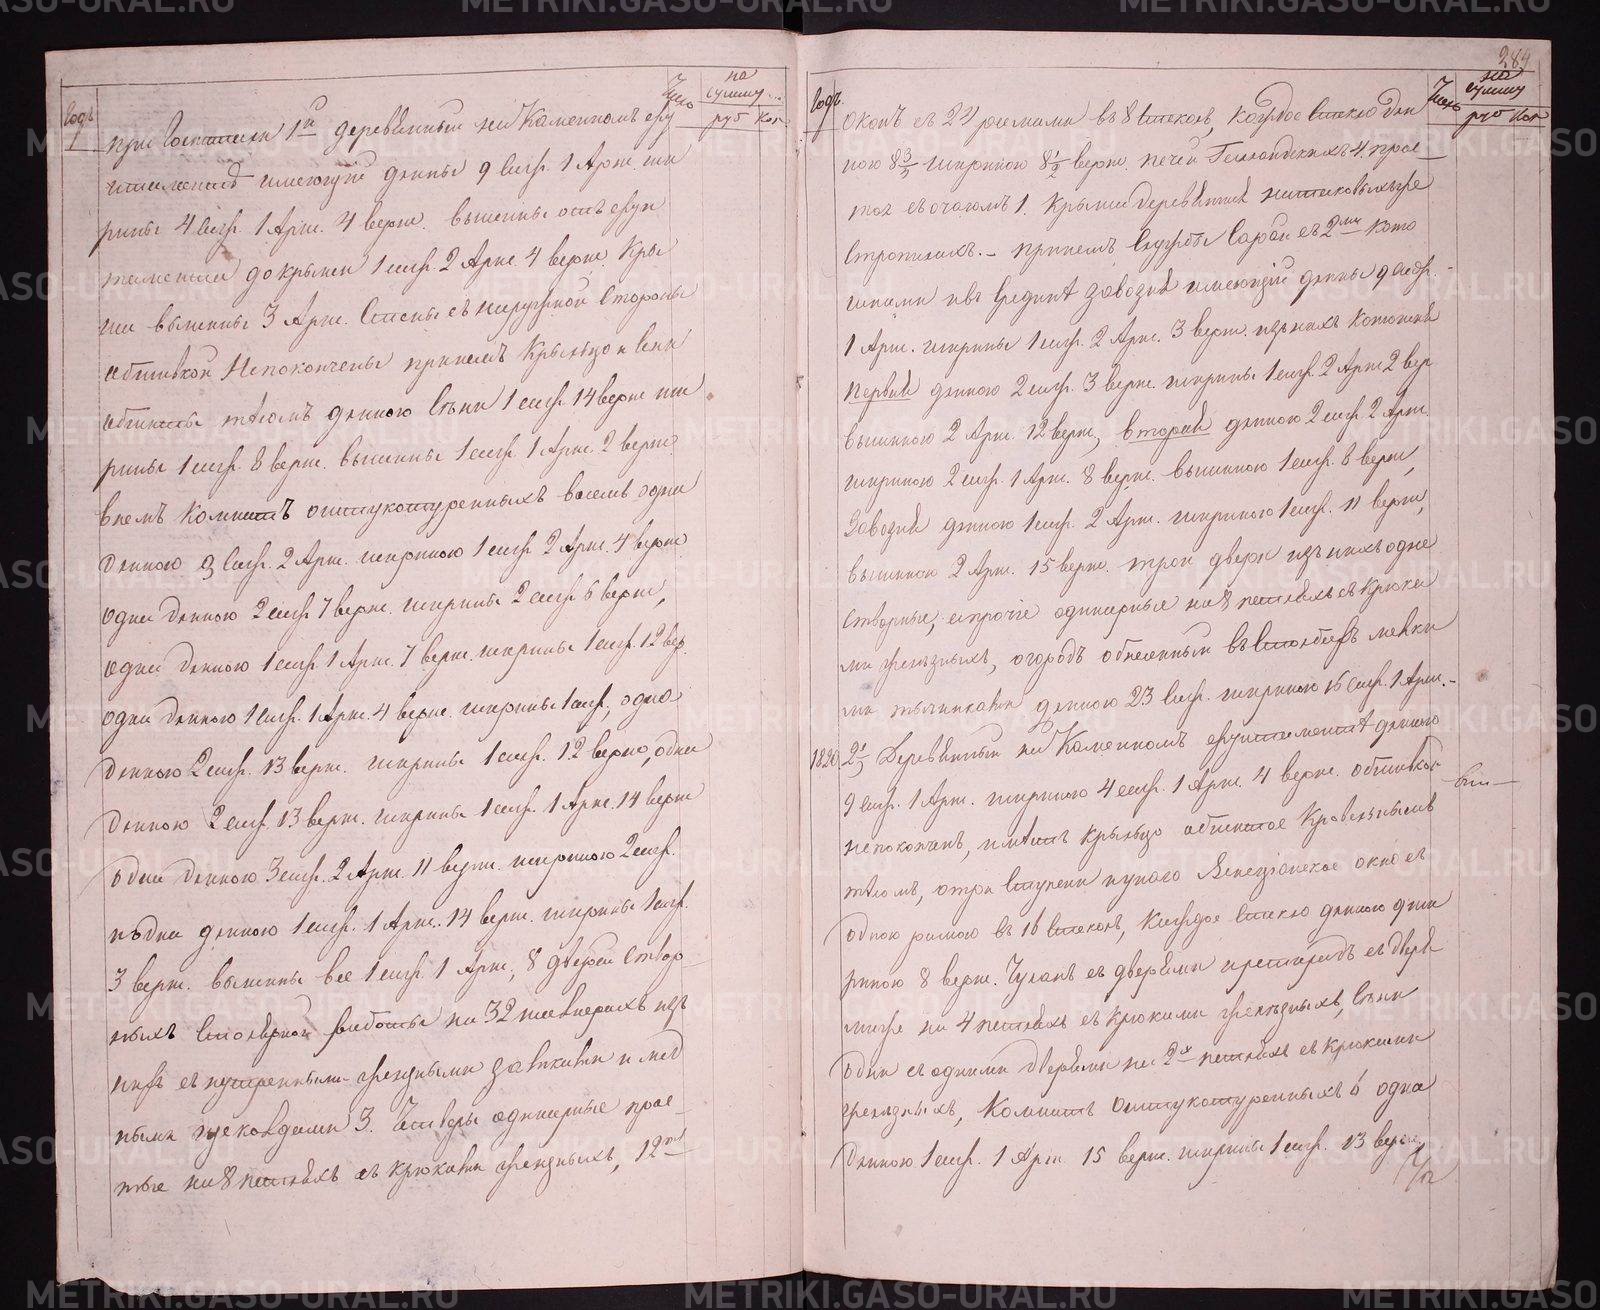 Годъ
Число
на сумму
руб Коп
при Госпитали 1й деревянный на Каменномъ фун
даментѣ имеющій длины 9 саж. 1 Арш. ши
рины 4 саж. 1 Арш. 4 верш. вышины отъ фун
тамента до крыши 1 саж. 2 Арш. 4 верш. Кры
ши вышины 3 Арш. Стены съ наружной Стороны
обшивкой Непокончены принемъ Крыльцо и сени
обшиты тесомъ длиною Сѣни 1 саж. 14 верш ши
рины 1 саж. 8 верш. вышины 1 саж. 1 Арш. 2 верш.
внемъ Комнатъ оштукатуренныхъ восемь одна
длиною 3 Саж. 2 Арш. шириною 1 саж 2 Арш. 4 верш
одна длиною 2 саж 7 верш. ширины 2 саж 6 верш,
одна длиною 1 саж. 1 Арш. 7 верш. ширины 1 саж. 12 вер.
одна длиною 1 Саж. 1 Арш. 4 верш. ширины 1 саж, одна
длиною 2 саж. 13 верш. ширины 1 саж. 12 верш, одна
длиною 2 саж. 13 верш. ширины 1 саж. 1 Арш. 14 верш
одна длиною 3 саж. 2 Арш. 11 верш. шириною 2 саж.
и одна длиною 1 саж. 1 Арш. 14 верш. ширины 1 саж.
3 верш. вышины все 1 саж. 1 Арш, 8 дверей створ
ныхъ Столярной работы на 32 шавнерахъ изъ
нихъ съ нутренными желѣзными задвижками и мед
ными 3. Четверы одинарные прос
тые на 8 петляхъ съ крюками желѣзныхъ, 12ть
284
Годъ
Число
на сумму
руб Коп
Оконъ съ 24 рамами въ 8 стеколъ, Каждое стекло дли
ною 8 3/4 шириною 8 1/2 верш. печей Голландскихъ 4. прос
тая съ очагомъ 1. Крыша деревянная
Стропилахъ. – принемъ Службы Сарай съ 2мя Коню
шнями ивъ средине завозня имеющій длины 9 саж.
1 Арш. ширины 1 саж. 2 Арш. 3 верш. изъ нихъ Конюшня
первая длиною 2 саж. 3 верш. ширины 1 саж. 2 Арш 2 вер
вышиною 2 Арш. 12 верш, вторая длиною 2 саж. 2 Арш.
шириною 2 саж. 1 Арш. 8 верш. вышиною 1 саж. 8 верш,
Завозня длиною 1 саж. 2 Арш. шириною 1 саж. 11 верш,
вышиною 2 Арш. 15 верш. трои двери изъ нихъ одне
створные, а прочіе одинарные на 8 петляхъ съ крюка
ми желѣзныхъ, огородъ обнесенный въ столбахъ мелки
ми тычинками длиною 23 саж. шириною 16 саж. 1 Арш. –
1820 2й Деревянный на Каменномъ фундаментѣ длиною
9 саж. 1 Арш. шириною 4 саж. 1 Арш. 4 верш. обшивкой
непокончанъ, имѣетъ крыльцо обшитое Кровельнымъ
тесомъ, отри ступени унаго Венеціонское окно съ
одною рамою въ 16 стеколъ, Каждое стекло длиною 9 ши
риною 8 верш. Чуланъ съ дверями
на 4 петляхъ съ крюками желѣзныхъ, Сѣни
одни съ одними дверями на 2х петляхъ съ крюками
желѣзныхъ, Комнатъ оштукатуренныхъ 6 одна
длиною 1 саж. 1 Арш 15 верш. ширины 1 саж. 13 верш.